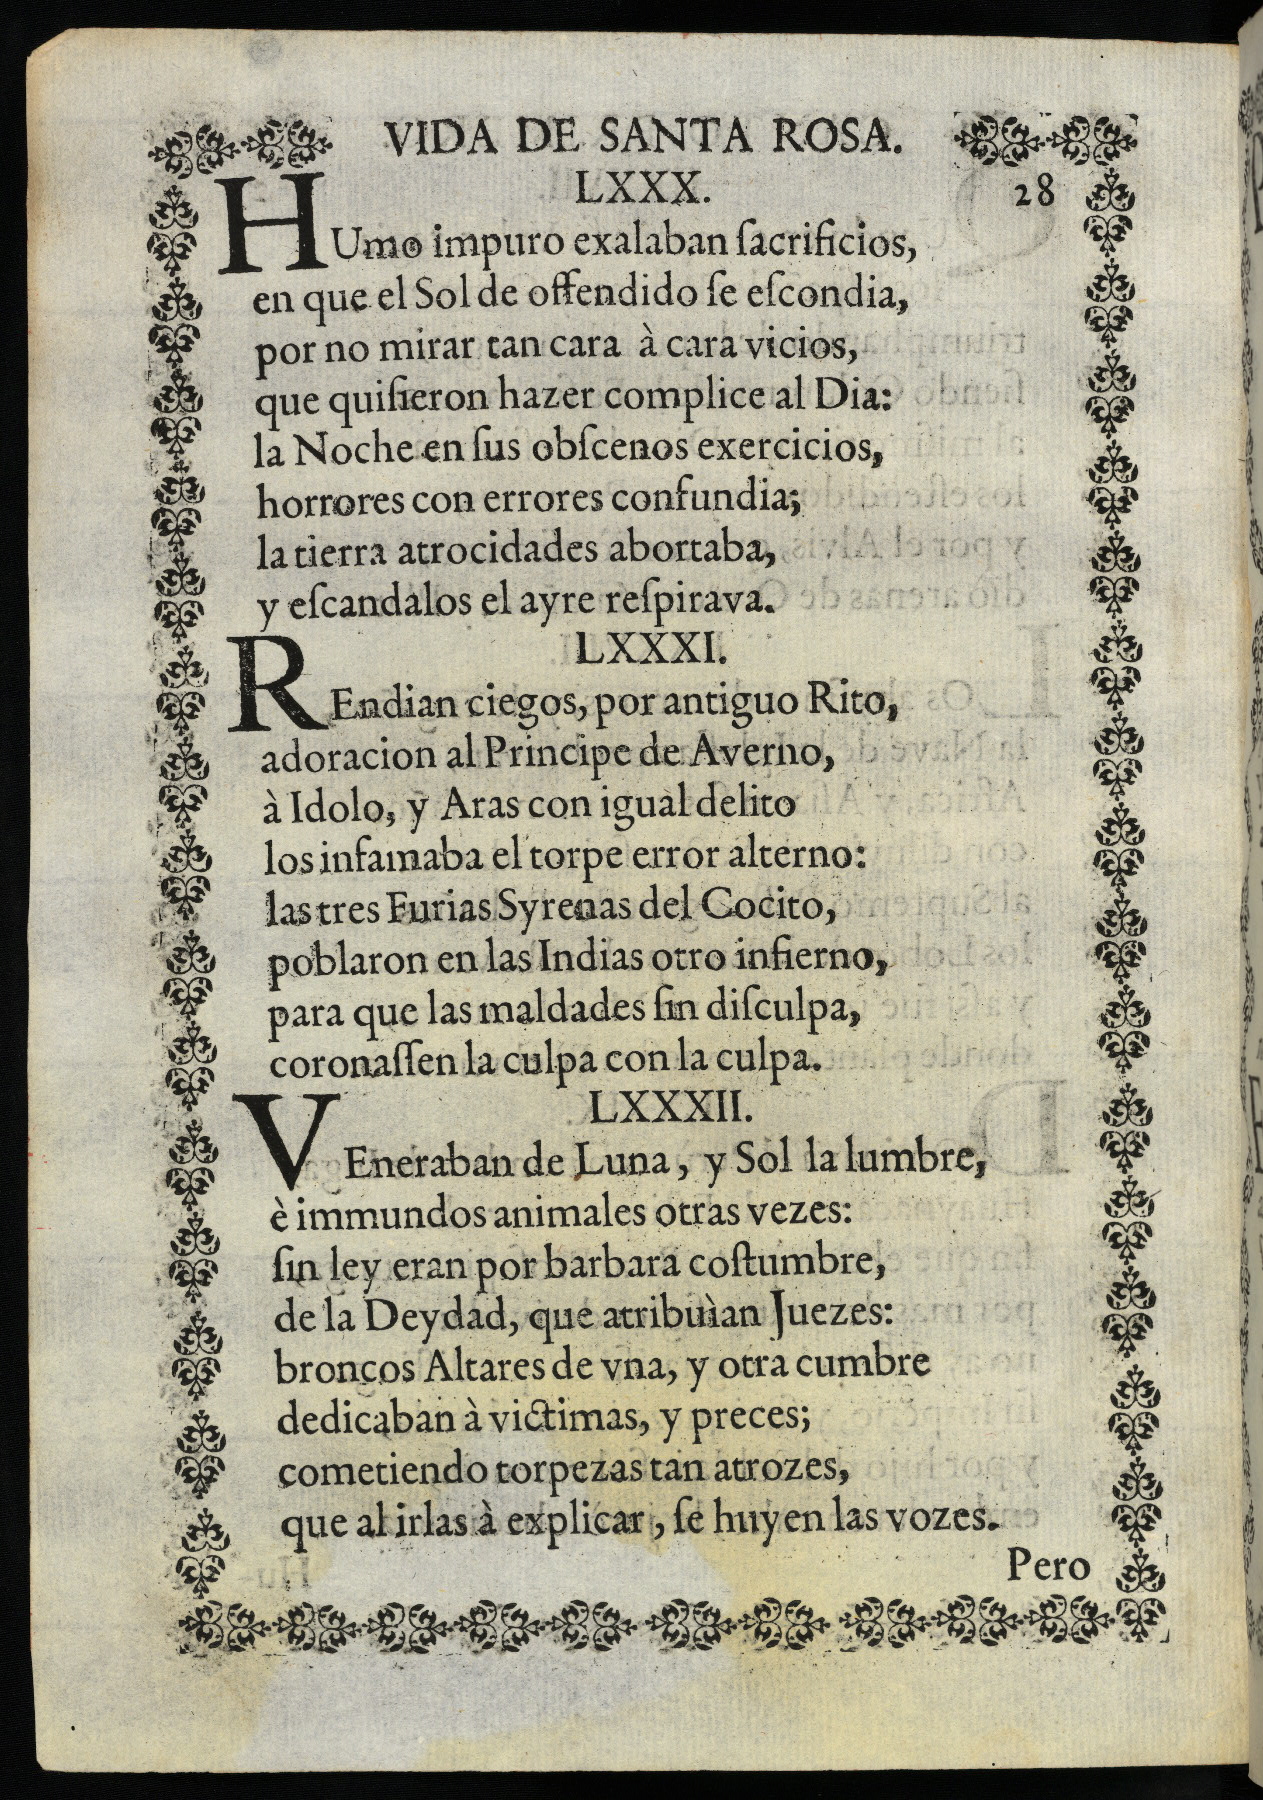 VIDA DE SANTA ROSA.
LXXX. 28
HUmo impuro exalaban ſacrificios,
en que el Sol de offendido ſe eſcondia,
por no mirar tan cara à cara vicios,
que quiſieron hazer complice al Dia:
la Noche en ſus obſcenos exercicios,
horrores con errores confundia;
la tierra atrocidades abortaba,
y eſcandalos el ayre reſpirava.
LXXXI.
REndian ciegos, por antiguo Rito,
adoracion al Principe de Averno,
à Idolo, y Aras con igual delito
los infamaba el torpe error alterno:
las tres Furias Syrenas del Cocito,
poblaron en las Indias otro infierno,
para que las maldades ſin diſculpa,
coronaſſen la culpa con la culpa.
LXXXII.
VEneraban de Luna, y Sol la lumbre,
è immundos animales otras vezes:
ſin ley eran por barbara coſtumbre,
de la Deydad, que atribuìan Juezes:
broncos Altares de vna, y otra cumbre
dedicaban à victimas, y preces;
cometiendo torpezas tan atrozes,
que al irlas à explicar, ſe huyen las vozes.
Pero